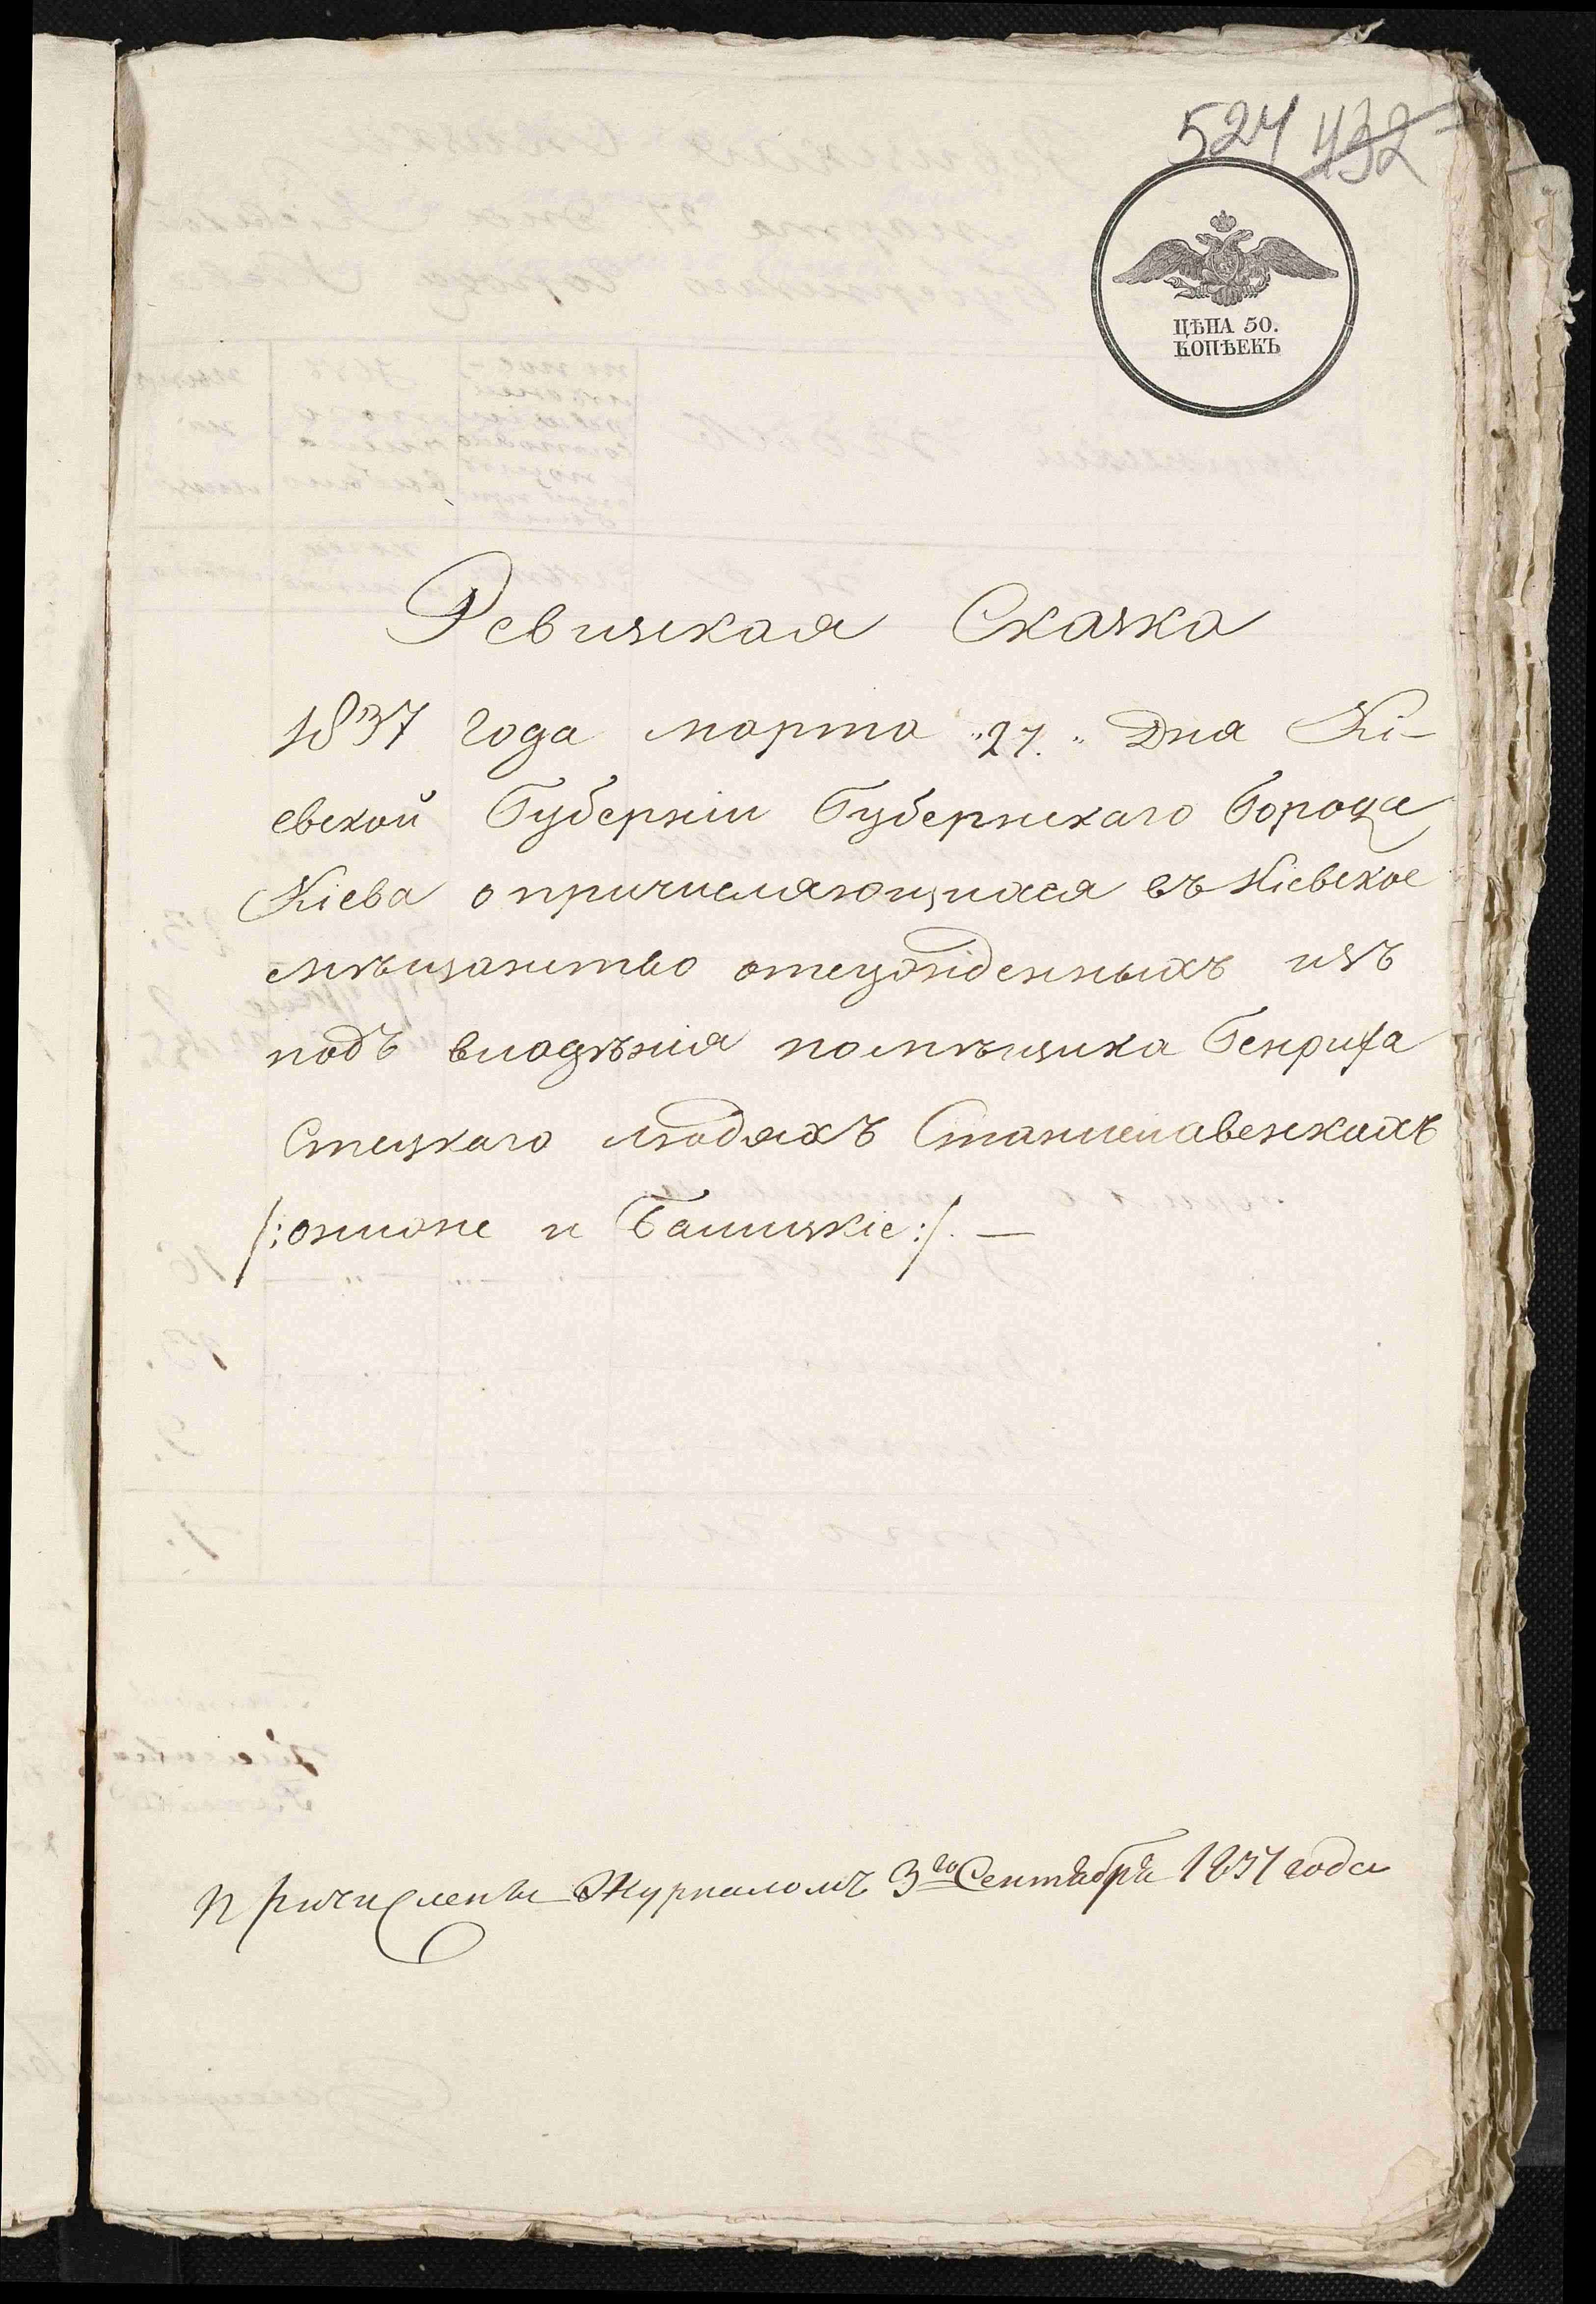 524 432
ЦѢНА 50.
КОПѢЕКЪ
Ревизская Сказка
1837 года марта "27." Дня Кі-
евской Губерніи Губернскаго Города
Кіева о причисляющихся въ Кіевское
мѣщанство отсужденныхъ изъ
подъ владѣнія помѣщика Генриха
Стецкаго людяхъ Станиславскихъ
/:ониже и Балицкіе:/. —
Причислены Журналомъ 3го Сентября 1837 года